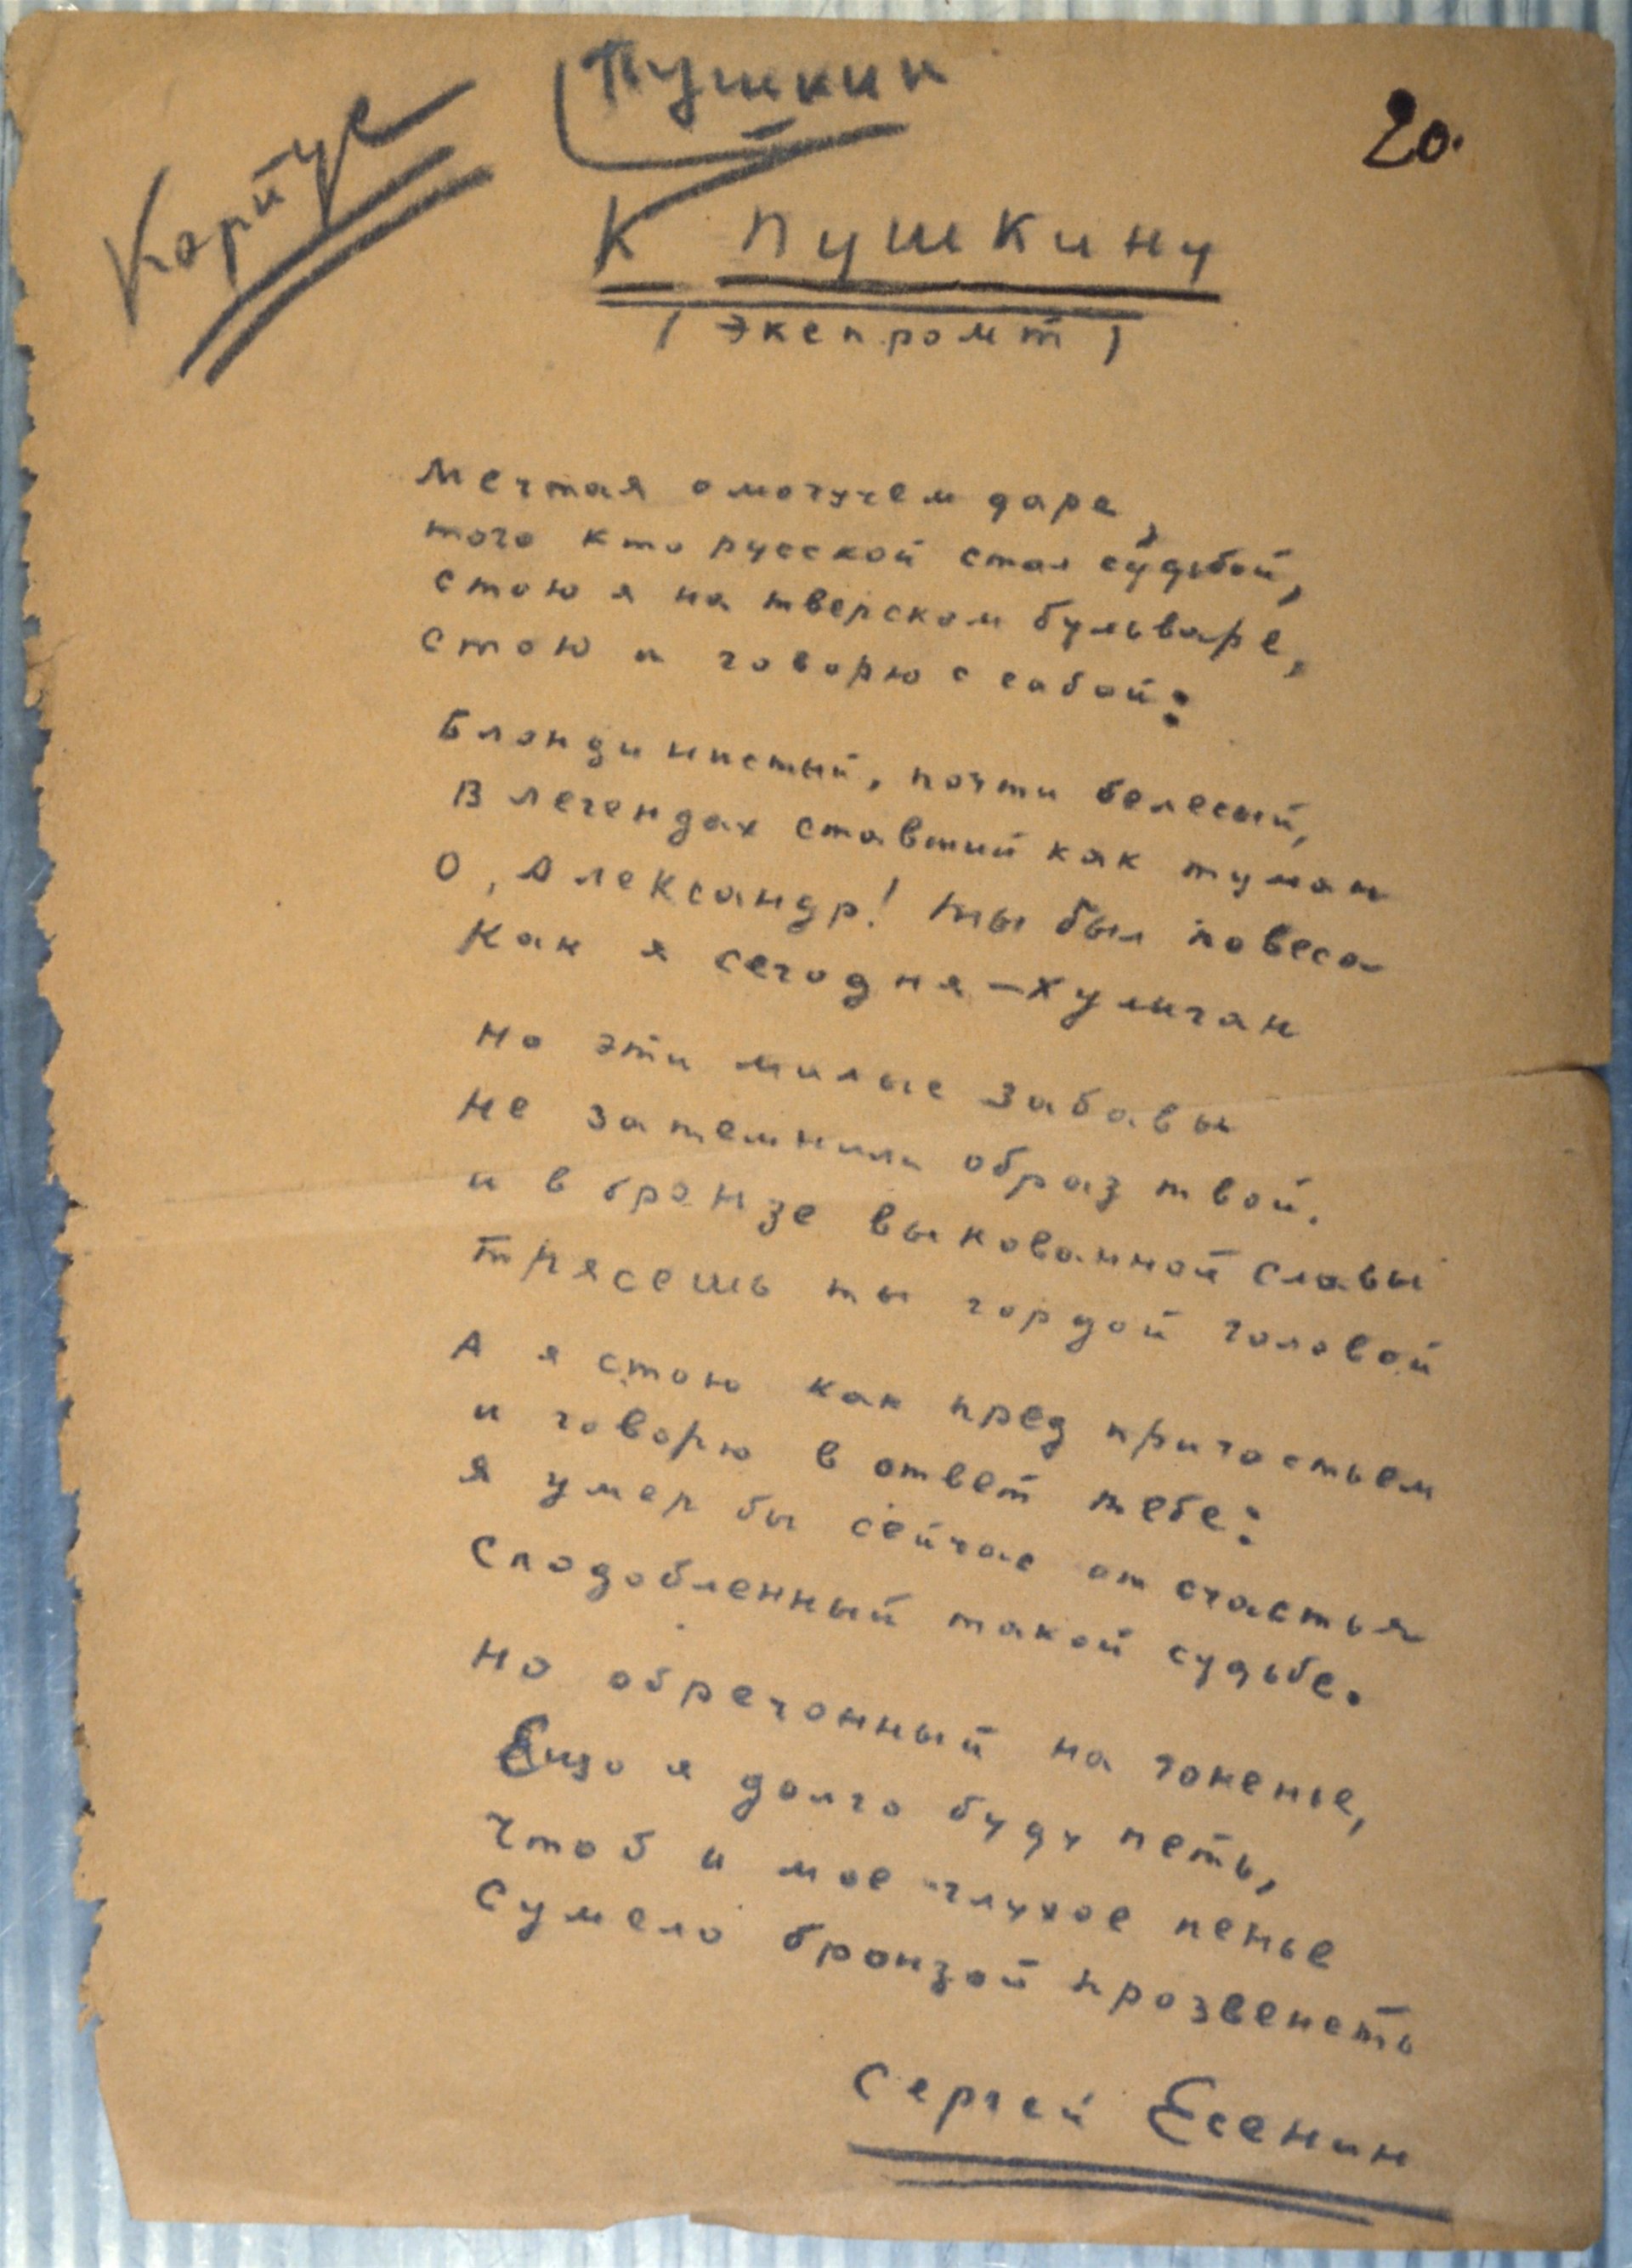 Пушкин
Корпус
20.
К Пушкину
(Экспромт)
Мечтая о могучем даре,
того кто русской стал судьбой,
стою я на тверском бульваре,
стою и говорю с собой:
Блондинистый, почти белесый,
В легендах ставший как туман
О, Александр! ты был повеса
Как я сегодня – хулиган
Но эти милые забавы
Не затемнили образ твой.
и в бронзе выкованной славы
трясешь ты гордой головой
А я стою как пред причастьем
и говорю в ответ тебе:
я умер бы сейчас от счастья
Сподобленный такой судьбе.
Но обречонный на гоненье,
Ещо я долго буду петь,
Чтоб и мое глухое пенье
Сумело бронзой прозвенеть
Сергей Есенин